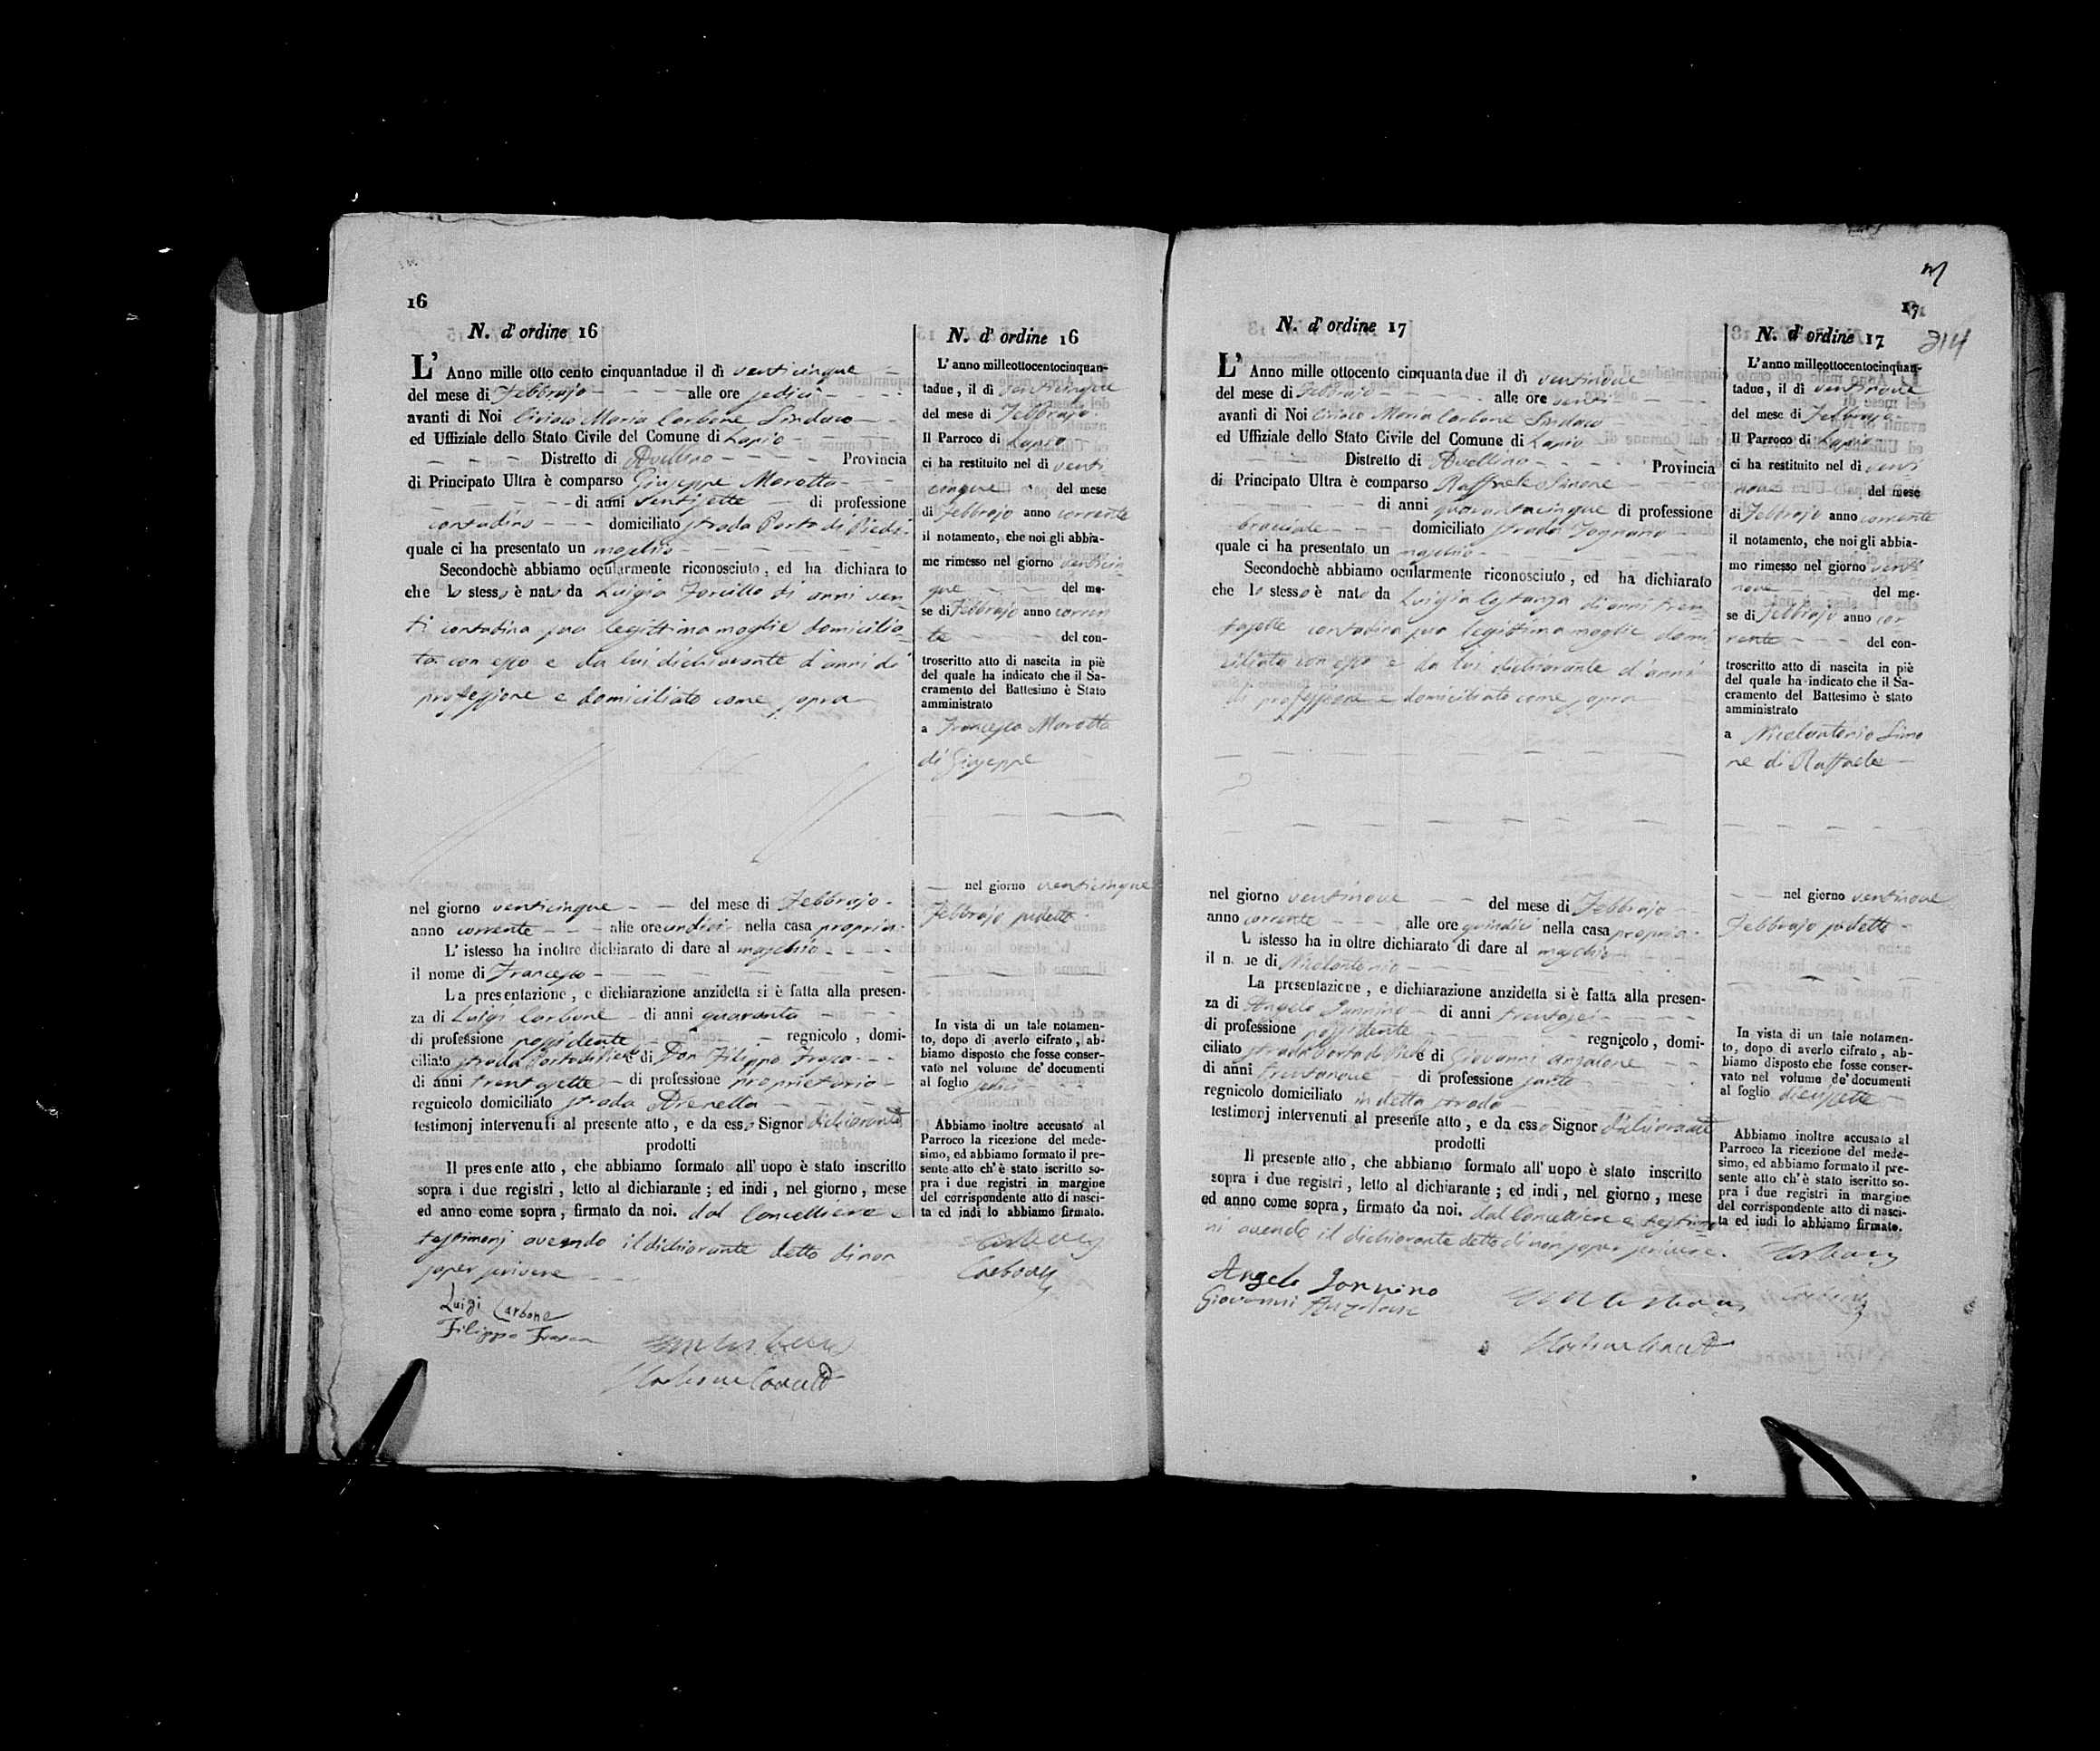 16
N. d' ordine 16
L' Anno mille otto cento cinquantadue il dì venticinque
del mese di Febbrajo alle ore sedici
avanti di Noi Ciriaco Maria Carbone Sindaco
ed Uffiziale dello Stato Civile del Comune di Lapio
Distretto di Avellino Provincia
di Principato Ultra è comparso Giuseppe Marotta
di anni ventisette di professione
contadino domiciliato strada Porta di Piedi
quale ci ha presentato un maschio
Secondochè abbiamo ocularmente riconosciuto, ed ha dichiara to
che lo stesso è nato da Luigia Forcillo di anni ven-
ti contadina sua legittima moglie domicilia-
ta con esso e da lui dichiarante d'anni di
professione e domiciliato come sopra
nel giorno venticinque del mese di Febbrajo
anno corrente alle ore undici nella casa propria
L' istesso ha inoltre dichiarato di dare al maschio
il nome di Francesco
La presentazione, e dichiarazione anzidetta si è fatta alla presen-
za di Luigi Carbone di anni quaranta
di professione possidente regnicolo, domi-
ciliato strada Porta di Piedi e di Don Filippo Frasca
di anni trentasette di professione proprietario
regnicolo domiciliato strada Arenella
testimonj intervenuti al presente atto, e da esso Signor dichiarante
prodotti
Il presente atto, che abbiamo formato all' uopo è stato inscritto
sopra i due registri, letto al dichiarante; ed indi, nel giorno, mese
ed anno come sopra, firmato da noi. dal Cancelliere e
testimonj avendo il dichiarante detto di non
saper scrivere
Luigi Carbone
Filippo Frasca
N. d' ordine 16
L' anno milleottocentocinquan-
tadue, il dì venticinque
del mese di Febbrajo
Il Parroco di Lapio
ci ha restituito nel dì venti
cinque del mese
di Febbrajo anno corrente
il notamento, che noi gli abbia-
mo rimesso nel giorno venticin-
que del me-
se di Febbrajo anno corren
te del con-
troscritto atto di nascita in piè
del quale ha indicato che il Sa-
cramento del Battesimo è Stato
amministrato
a Francesco Marotta
di Giuseppe
nel giorno venticinque
Febbrajo sudetto
In vista di un tale notamen-
to, dopo di averlo cifrato, ab-
biamo disposto che fosse conser-
vato nel volume de' documenti
al foglio sedici
Abbiamo inoltre accusato al
Parroco la ricezione del mede-
simo, ed abbiamo formato il pre-
sente atto ch' è stato iscritto so-
pra i due registri in margine
del corrispondente atto di nasci-
ta ed indi lo abbiamo firmato.
Carbone
17
314
N. d' ordine 17
L' Anno mille ottocento cinquantadue il dì ventinove
del mese di Febbrajo alle ore venti
avanti di Noi Ciriaco Maria Carbone Sindaco
ed Uffiziale dello Stato Civile del Comune di Lapio
Distretto di Avellino Provincia
di Principato Ultra è comparso Raffaele Simone
di anni quarantacinque di professione
bracciale domiciliato strada Tognano
quale ci ha presentato un maschio
Secondochè abbiamo ocularmente riconosciuto, ed ha dichiarato
che lo stesso è nato da Luigia Costanza di anni tren
tasette contadina sua legittima moglie domi
ciliata con esso e da lui dichiarante d'anni
di professione e domiciliato come sopra
nel giorno ventinove del mese di Febbrajo
anno corrente alle ore quindici nella casa propria
L istesso ha in oltre dichiarato di dare al maschio
il nome di Nicolantonio
La presentazione, e dichiarazione anzidetta si è fatta alla presen-
za di Angelo Jannino di anni trentasei
di professione possidente regnicolo, domi-
ciliato strada Porta di Piedi e di Giovanni Anzalone
di anni trentanove di professione sarto
regnicolo domiciliato in detta strada
testimonj intervenuti al presente atto, e da esso Signor dichiarante
prodotti
Il presente atto, che abbiamo formato all' uopo è stato inscritto
sopra i due registri, letto al dichiarante; ed indi, nel giorno, mese
ed anno come sopra, firmato da noi. dal Cancelliere e testimo
nj avendo il dichiarante detto di non saper scrivere.
Angelo Jannino
Giovanni Anzalone
N. d' ordine 17
L' anno milleottocentocinquan-
tadue, il dì ventinove
del mese di Febbrajo
Il Parroco di Lapio
ci ha restituito nel dì venti
nove del mese
di Febbrajo anno corrente
il notamento, che noi gli abbia-
mo rimesso nel giorno venti
nove del me-
se di Febbrajo anno cor
rente del con-
troscritto atto di nascita in piè
del quale ha indicato che il Sa-
cramento del Battesimo è stato
amministrato
a Nicolantonio Simo
ne di Raffaele
nel giorno ventinove
Febbrajo sudetto
In vista di un tale notamen-
to, dopo di averlo cifrato, ab-
biamo disposto che fosse conser-
vato nel volume de' documenti
al foglio diecisette
Abbiamo inoltre accusato al
Parroco la ricezione del mede-
simo, ed abbiamo formato il pre-
sente atto ch' è stato iscritto so-
pra i due registri in margine
del corrispondente atto di nasci-
ta ed indi lo abbiamo firmato.
Carbone